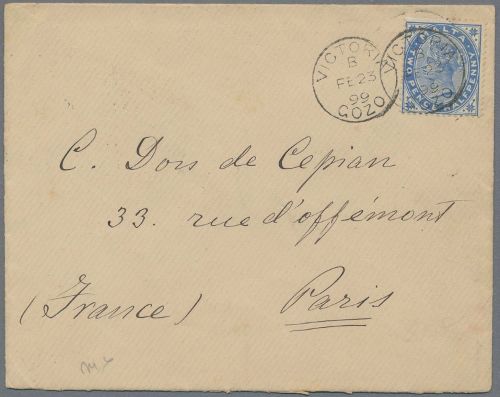 VICTORIA
B
FE 23
99
GOZO
VICTORIA
MALTA
TWO PENCE HALFPENNY
C. Dors de Cepian
33. rue d'offémont
(France) Paris